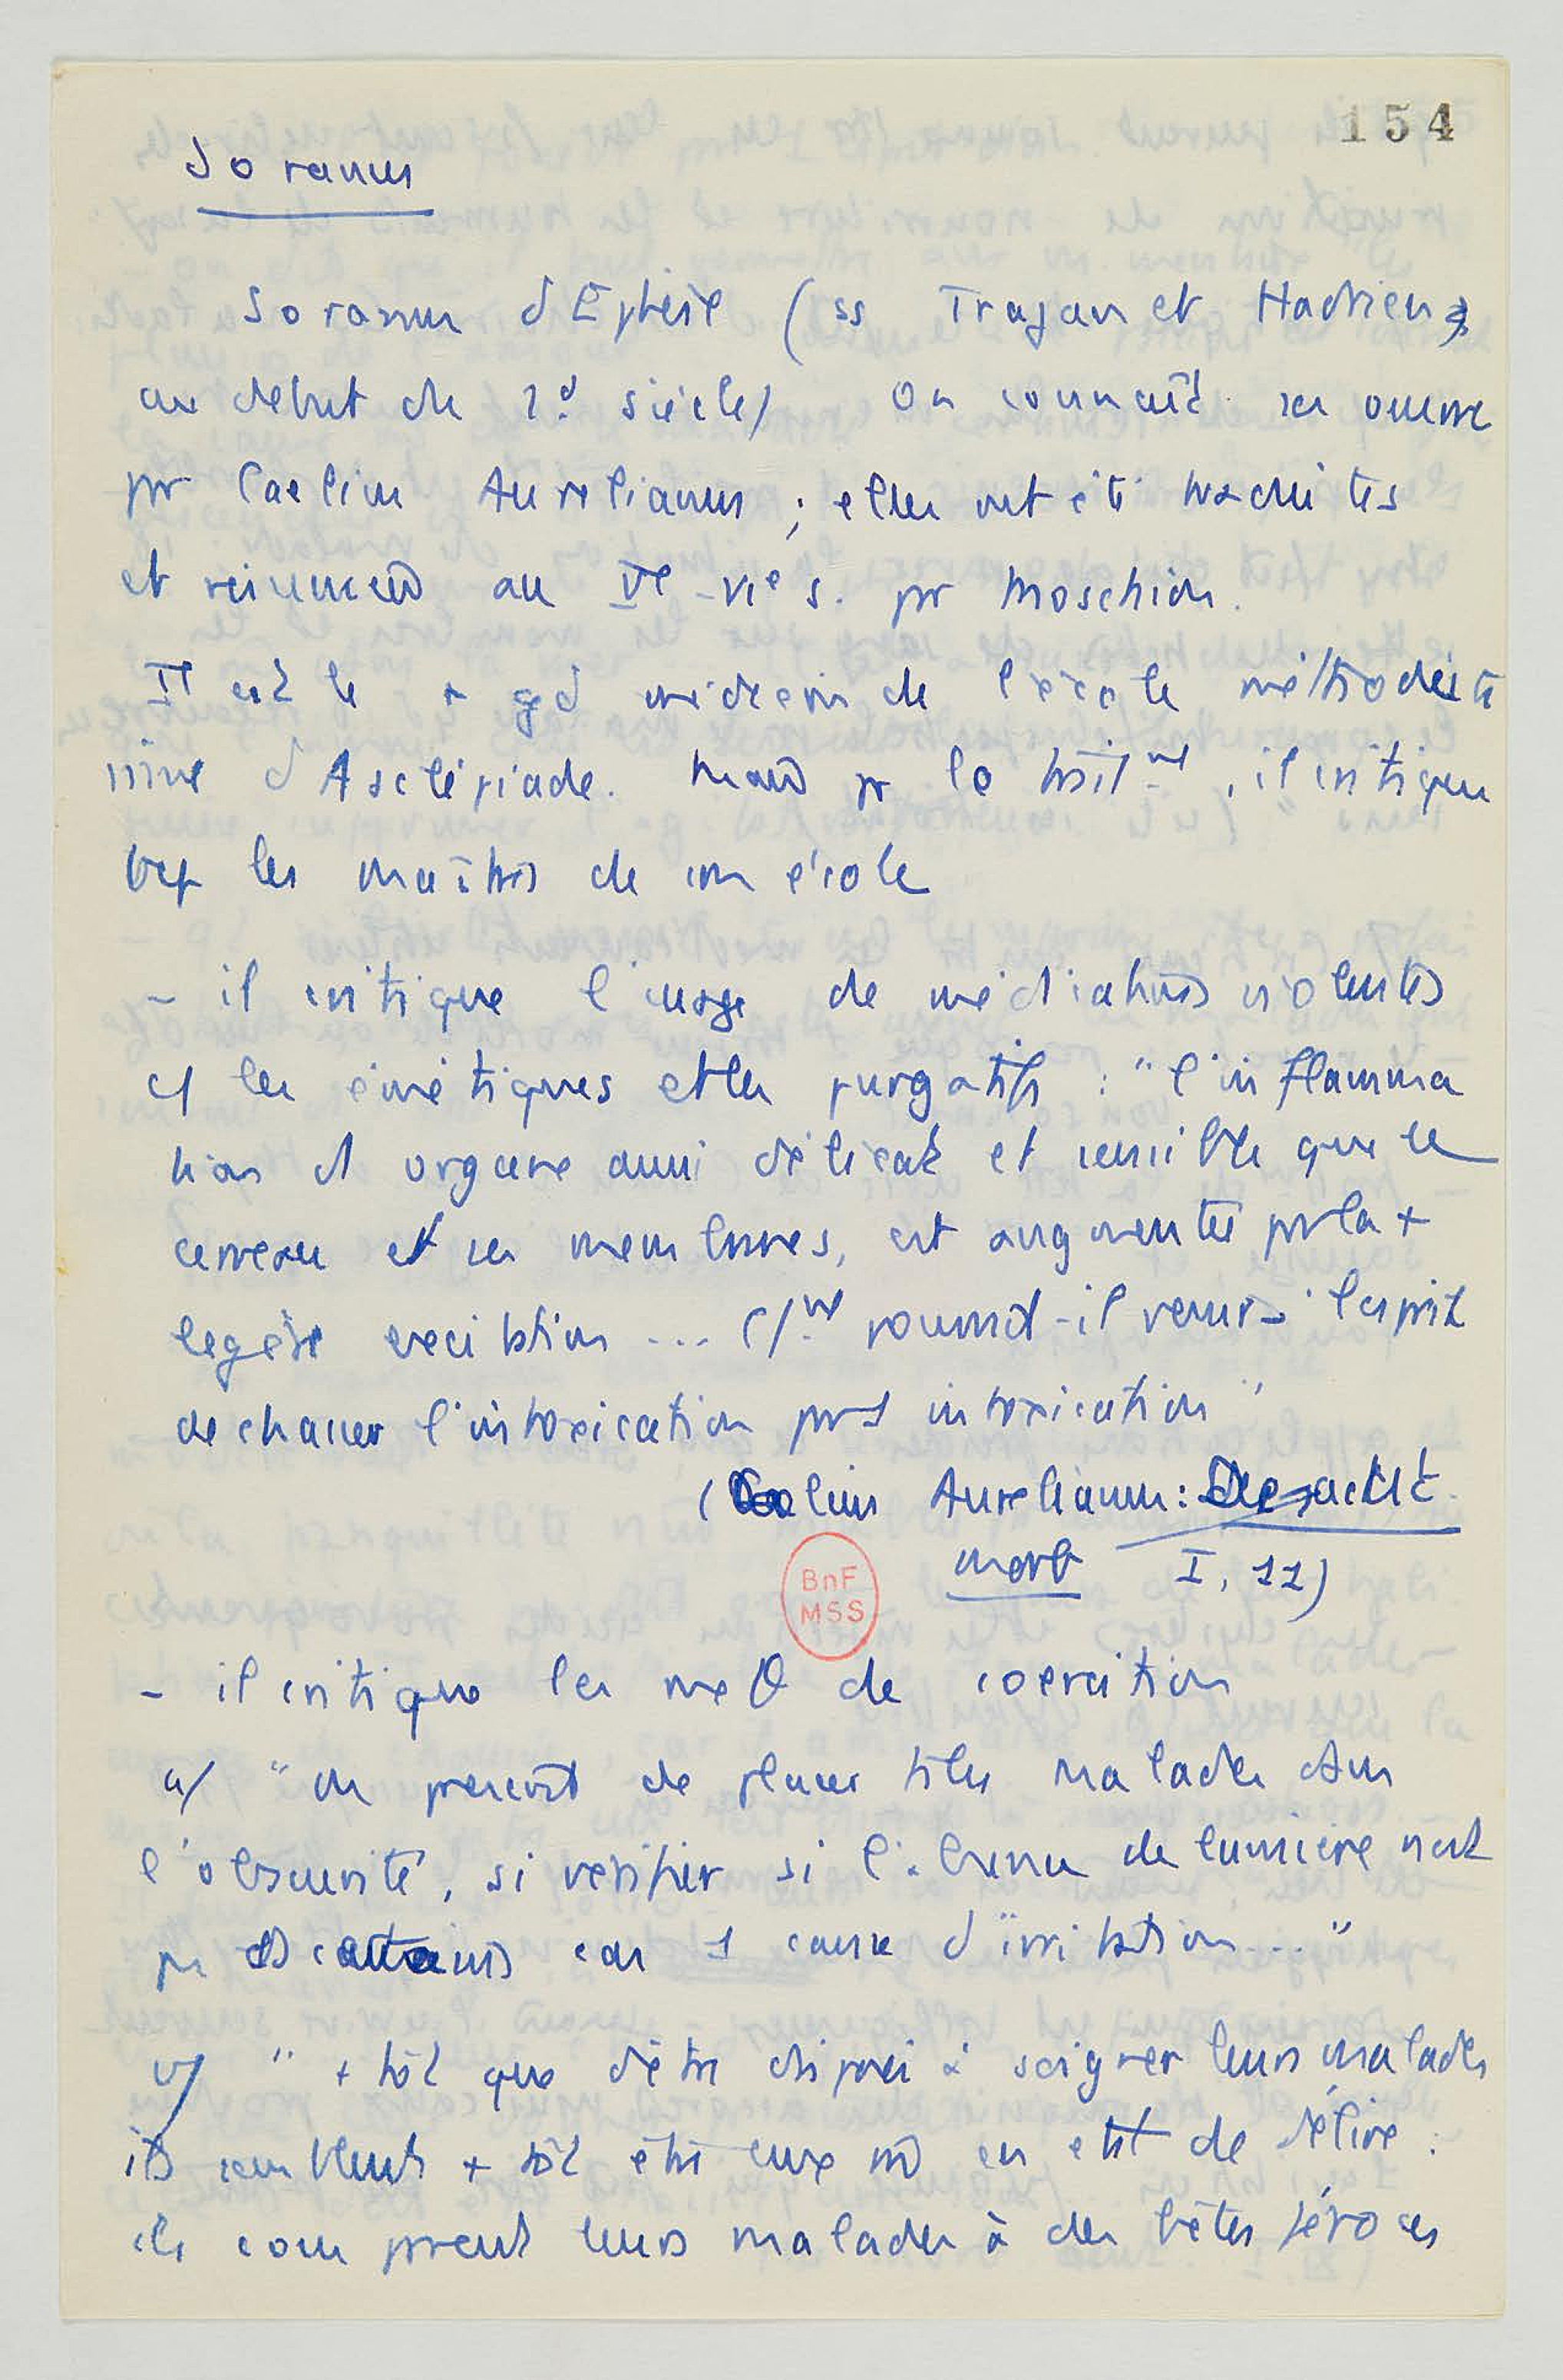 154
Soranus
Soranus d'Ephèse (ss Trajan et Hadrien,
au début du 2d siècle) On connaît ses œuvres
pr Caelius Aurelianus ; elles ont été traduites
et résumées au Ve-VIe s. pr Moschion.
Il est le + gd médecin de l'école méthodiste
issue d'Asclépiade. Mais pr le trait.nt, il critique
bcp les maîtres de son école
- il critique l'usage de médications violentes
c/ les émétiques et les purgatifs : "l'inflamma
tion d'1 organe aussi délicat et sensible que le
cerveau et ses membranes, est augmentée pr la +
légère excitation ... C/nt pourrait-il venir à l'esprit
de chasser l'intoxication pr 1 intoxication"
(Caelius Aurelianus : De acut.
morb I, 11)
BnF
MSS
- il critique les méθ de coercition
a/ "on prescrit de placer ts les malades dans
l'obscurité, si vérifier si l'absence de lumière n'est
pr certains cas 1 cause d'irritation..."
b/ "+ tôt que d'être disposés à soigner leurs malades
ils semblent + tôt être eux m̂ en état de délire :
ils comparent leurs malades à des bêtes féroces